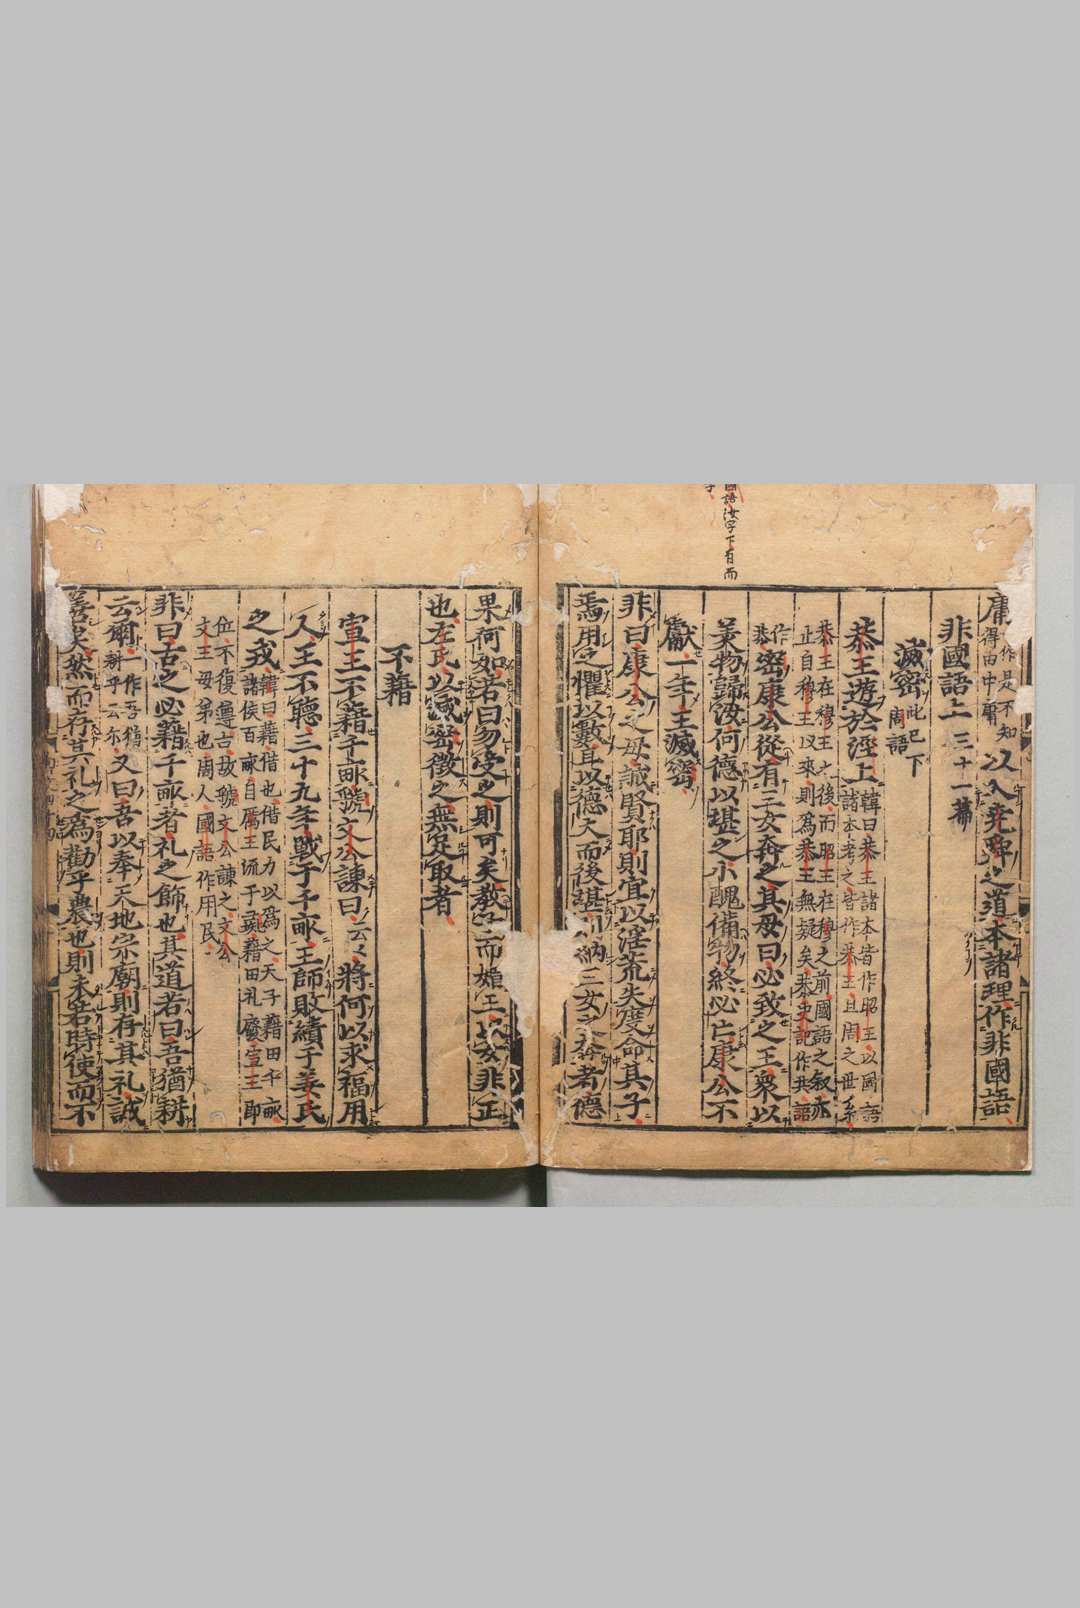 國語汝字下有而
字
庸得由中庸作是不知以入堯舜之道本諸理作非國語
非國語上三十一篇
滅密周語此已下
恭王遊於涇上韓曰恭王諸本皆作昭王以國語
諸本考之皆作恭王且周之世系
恭王在穆王之後而昭王在穆之前國語之叙亦
止自穆王以來則為恭王無疑矣恭史記作共語
作恭密康公從有三女奔之其母曰必致之王衆以
美物歸汝何德以堪之小醜備物終必亡康公不
獻一年王滅密
非曰康公之母誠賢耶則宜以淫荒失度命其子
焉用懼之以數且以德大而後堪則納三女之奔者德
果何如若曰勿受之則可矣教子而媚王以女非正
也左氏以滅密徵之無足取者
不藉
宣王不籍千畝虢文公諫曰云云將何以求福用
人王不聽三十九年戰于千畝王師敗績于姜氏
之戎韓曰藉借也借民力以為之天子藉田千畝
諸侯百畝自厲王流于彘藉田礼廢宣王即
位不復遵古故虢文公諫之文公
文王母弟也周人國語作用民
非曰古之必藉千畝者礼之飾也其道若曰吾猶耕
云爾一作吾猶耕乎云尓又曰吾以奉天地宗廟則存其礼誠
善矣然而存其礼之為勸乎農也則未若時使而不